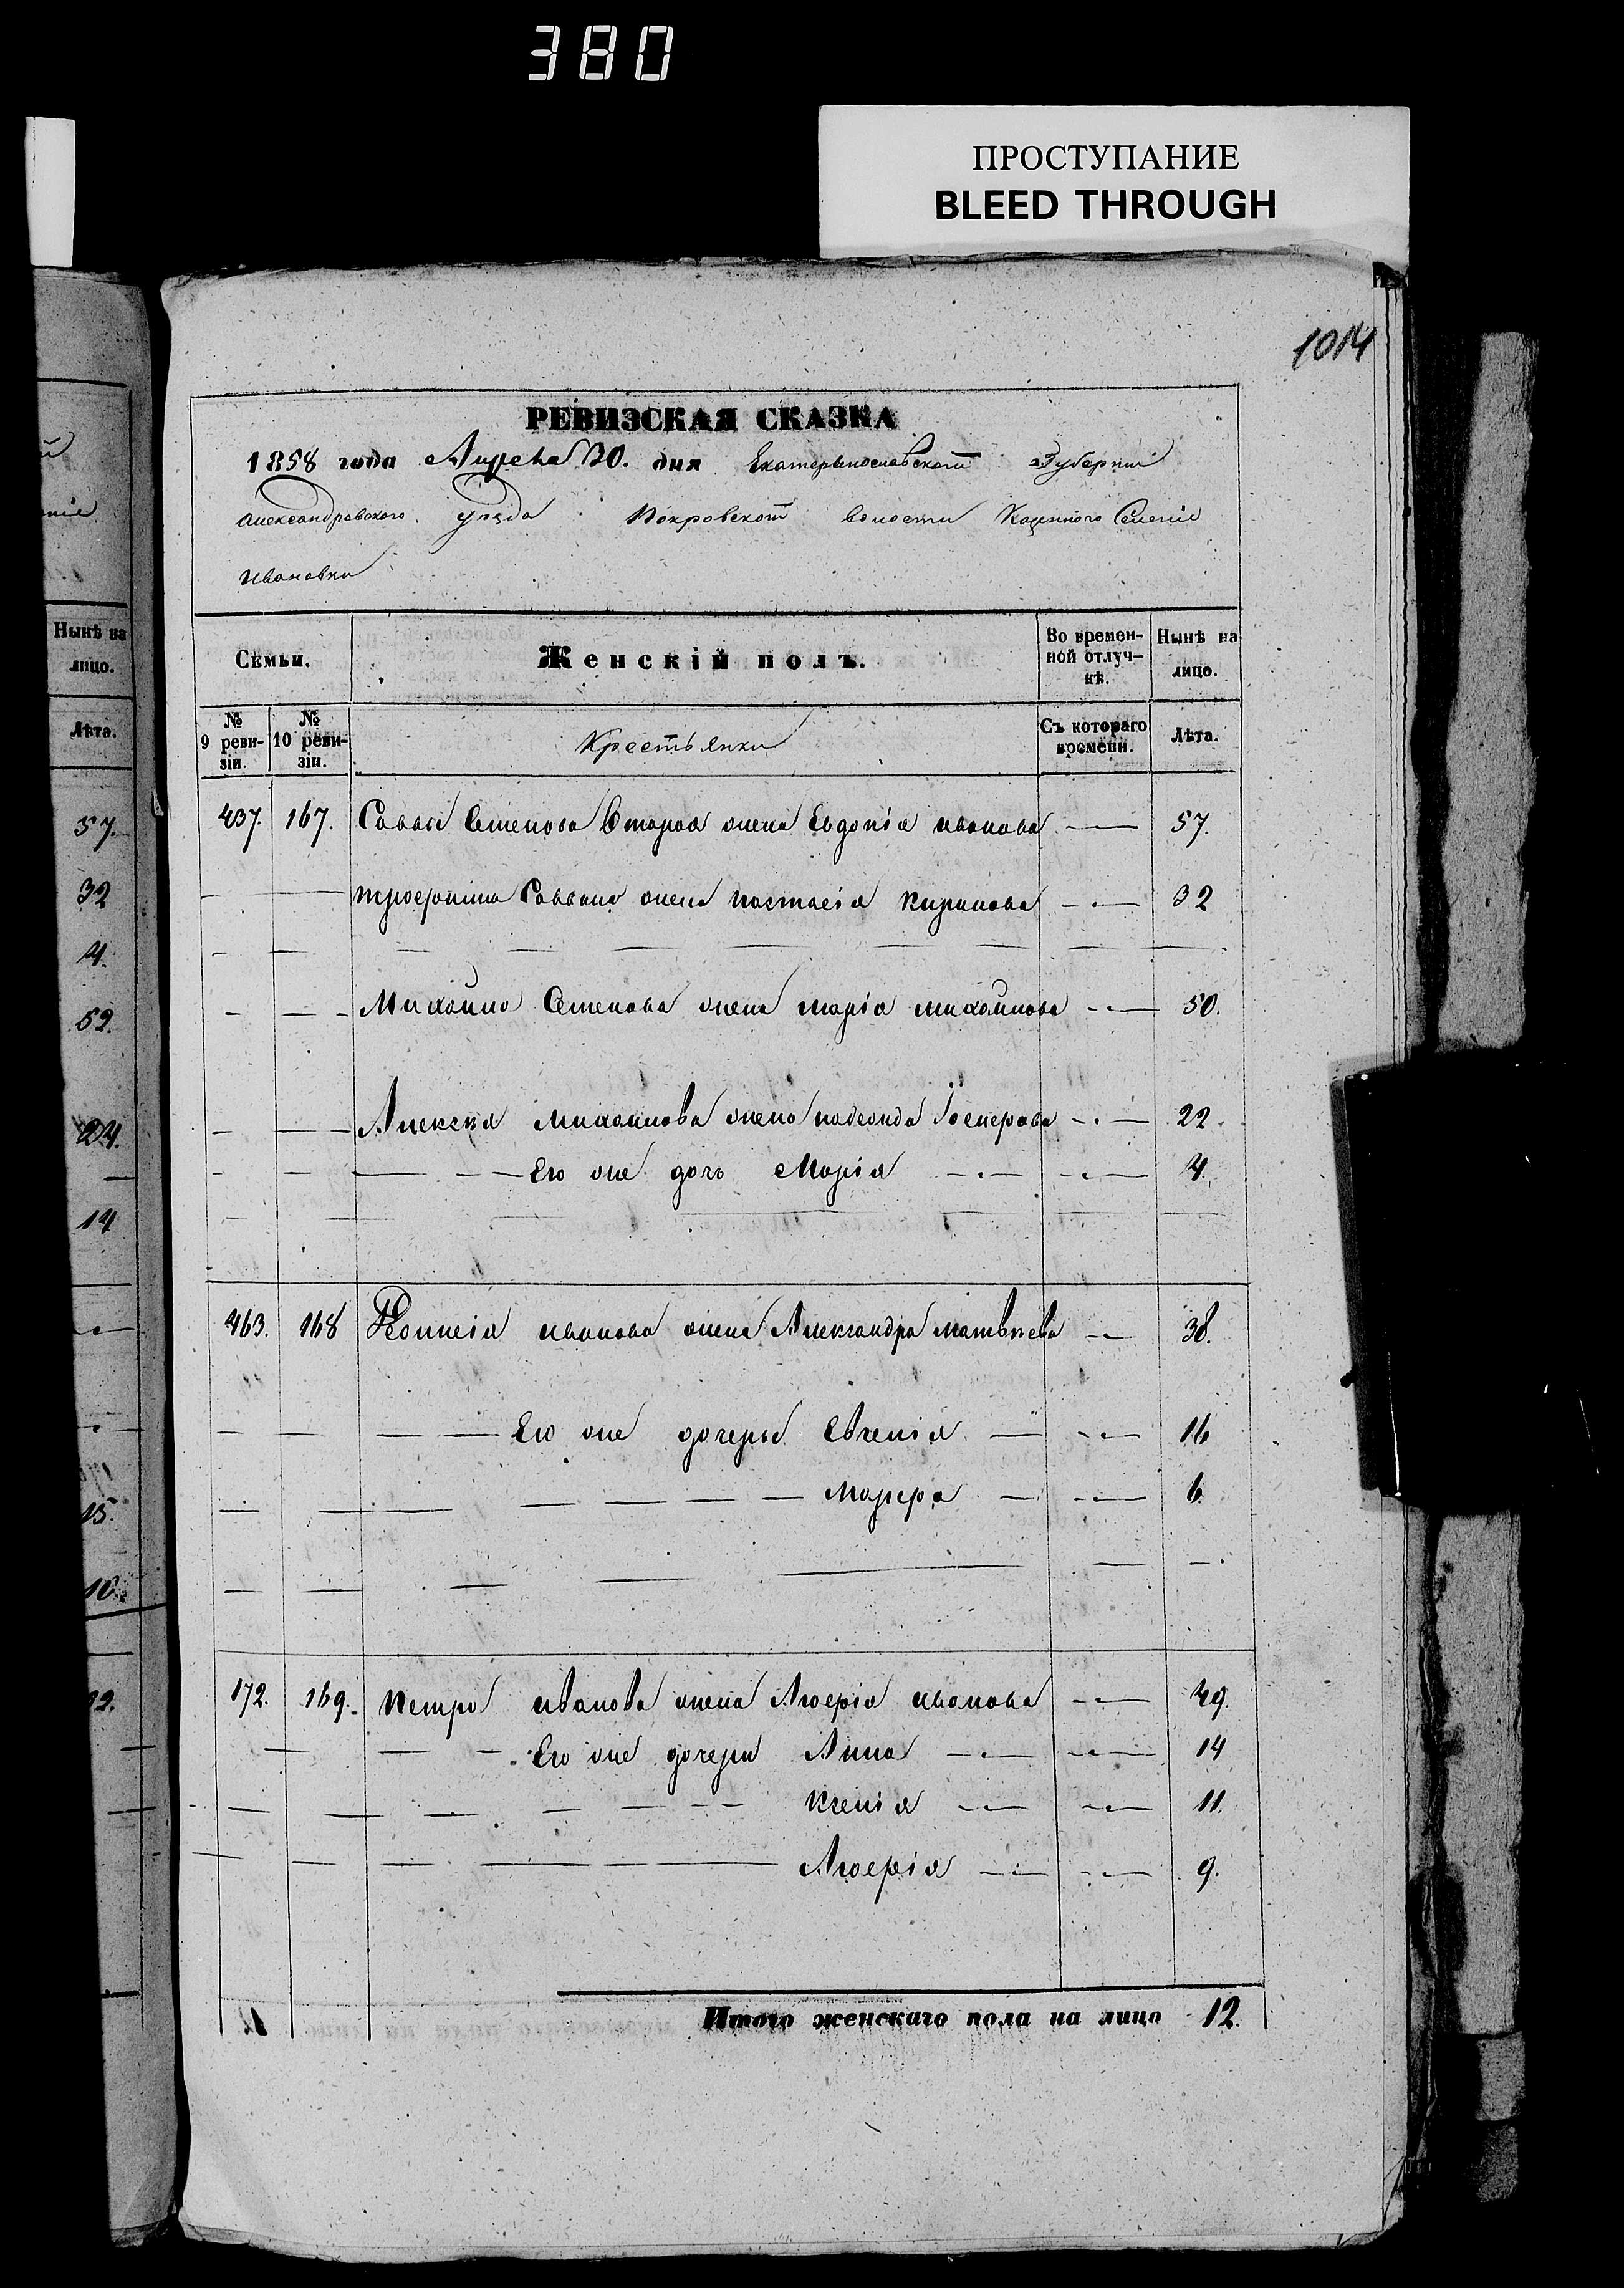 380
ПРОСТУПАНИЕ
BLEED THROUGH
1014
РЕВИЗСКАЯ СКАЗКА
1858 года Апреля 30. дня Екатеринославской Губернии
Александровского уезда Покровской волости Казенного Селенiя
Ивановки
Семьи.
Женскiй полъ.
Во времен-
ной отлуч-
кѣ.
Нынѣ на
лицо.
№
9 реви-
зiи.
№
10 реви-
зiи.
Крестьянки
Съ котораго
времени.
Лѣта.
437. 167. Саввы Семенова вторая жена Евдокiя иванова 57.
Саввина жена настасiя Кирилова 32
Михайло Семенова жена марiя михайлова 50.
Алексея михайлова жена 22.
Его же дочь Марiя 4.
463. 168 иванова жена Александра матвѣева 38.
Его же дочеры Евгенiя 16
6.
172. 169. Петра иванова жена иванова 49.
Его же дочери Анна 14
Ксенiя 11.
9.
Итого женскаго пола на лицо 12.
Нынѣ на
лицо.
Лѣта.
57.
32
4.
52.
24.
14
15.
10.